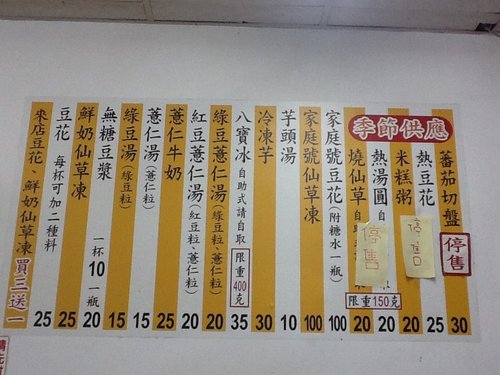 季節供應
蕃茄切盤 停售 30
熱豆花 25
米糕粥 停售 20
熱湯圓 自 停售 20
燒仙草 自助 20
限重150克
家庭號豆花(附糖水一瓶) 100
家庭號仙草凍 100
芋頭湯 10
冷凍芋 30
八寶冰 自助式請自取 限重400克 35
綠豆薏仁湯(綠豆粒、薏仁粒) 20
紅豆薏仁湯(紅豆粒、薏仁粒) 20
薏仁牛奶 25
薏仁湯(薏仁粒) 15
綠豆湯(綠豆粒) 15
無糖豆漿 一杯10 一瓶20
鮮奶仙草凍 25
豆花 每杯可加二種料 25
來店豆花、鮮奶仙草凍 買三送一